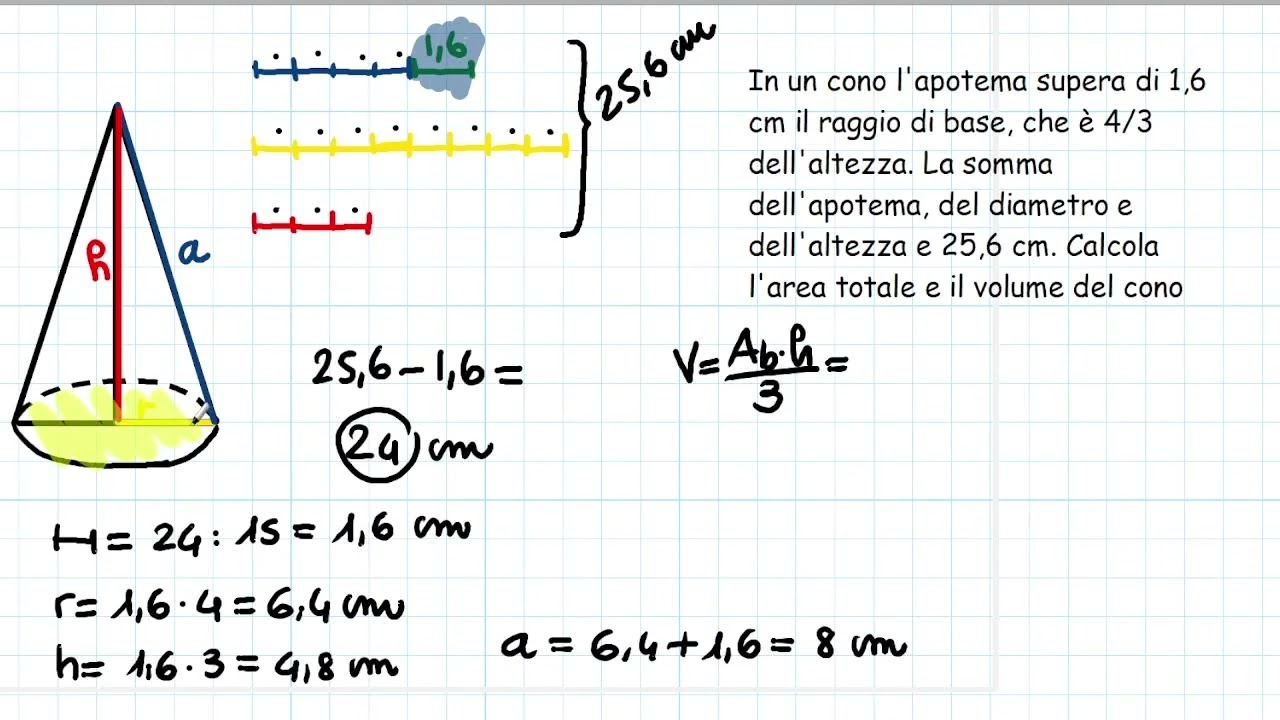 1,6
25,6 cm
In un cono l'apotema supera di 1,6
cm il raggio di base, che è 4/3
dell'altezza. La somma
dell'apotema, del diametro e
dell'altezza e 25,6 cm. Calcola
l'area totale e il volume del cono
h
a
r
25,6 - 1,6 =
24 cm
V = Ab · h / 3 =
|-| = 24 : 15 = 1,6 cm
r = 1,6 · 4 = 6,4 cm
h = 1,6 · 3 = 4,8 cm
a = 6,4 + 1,6 = 8 cm